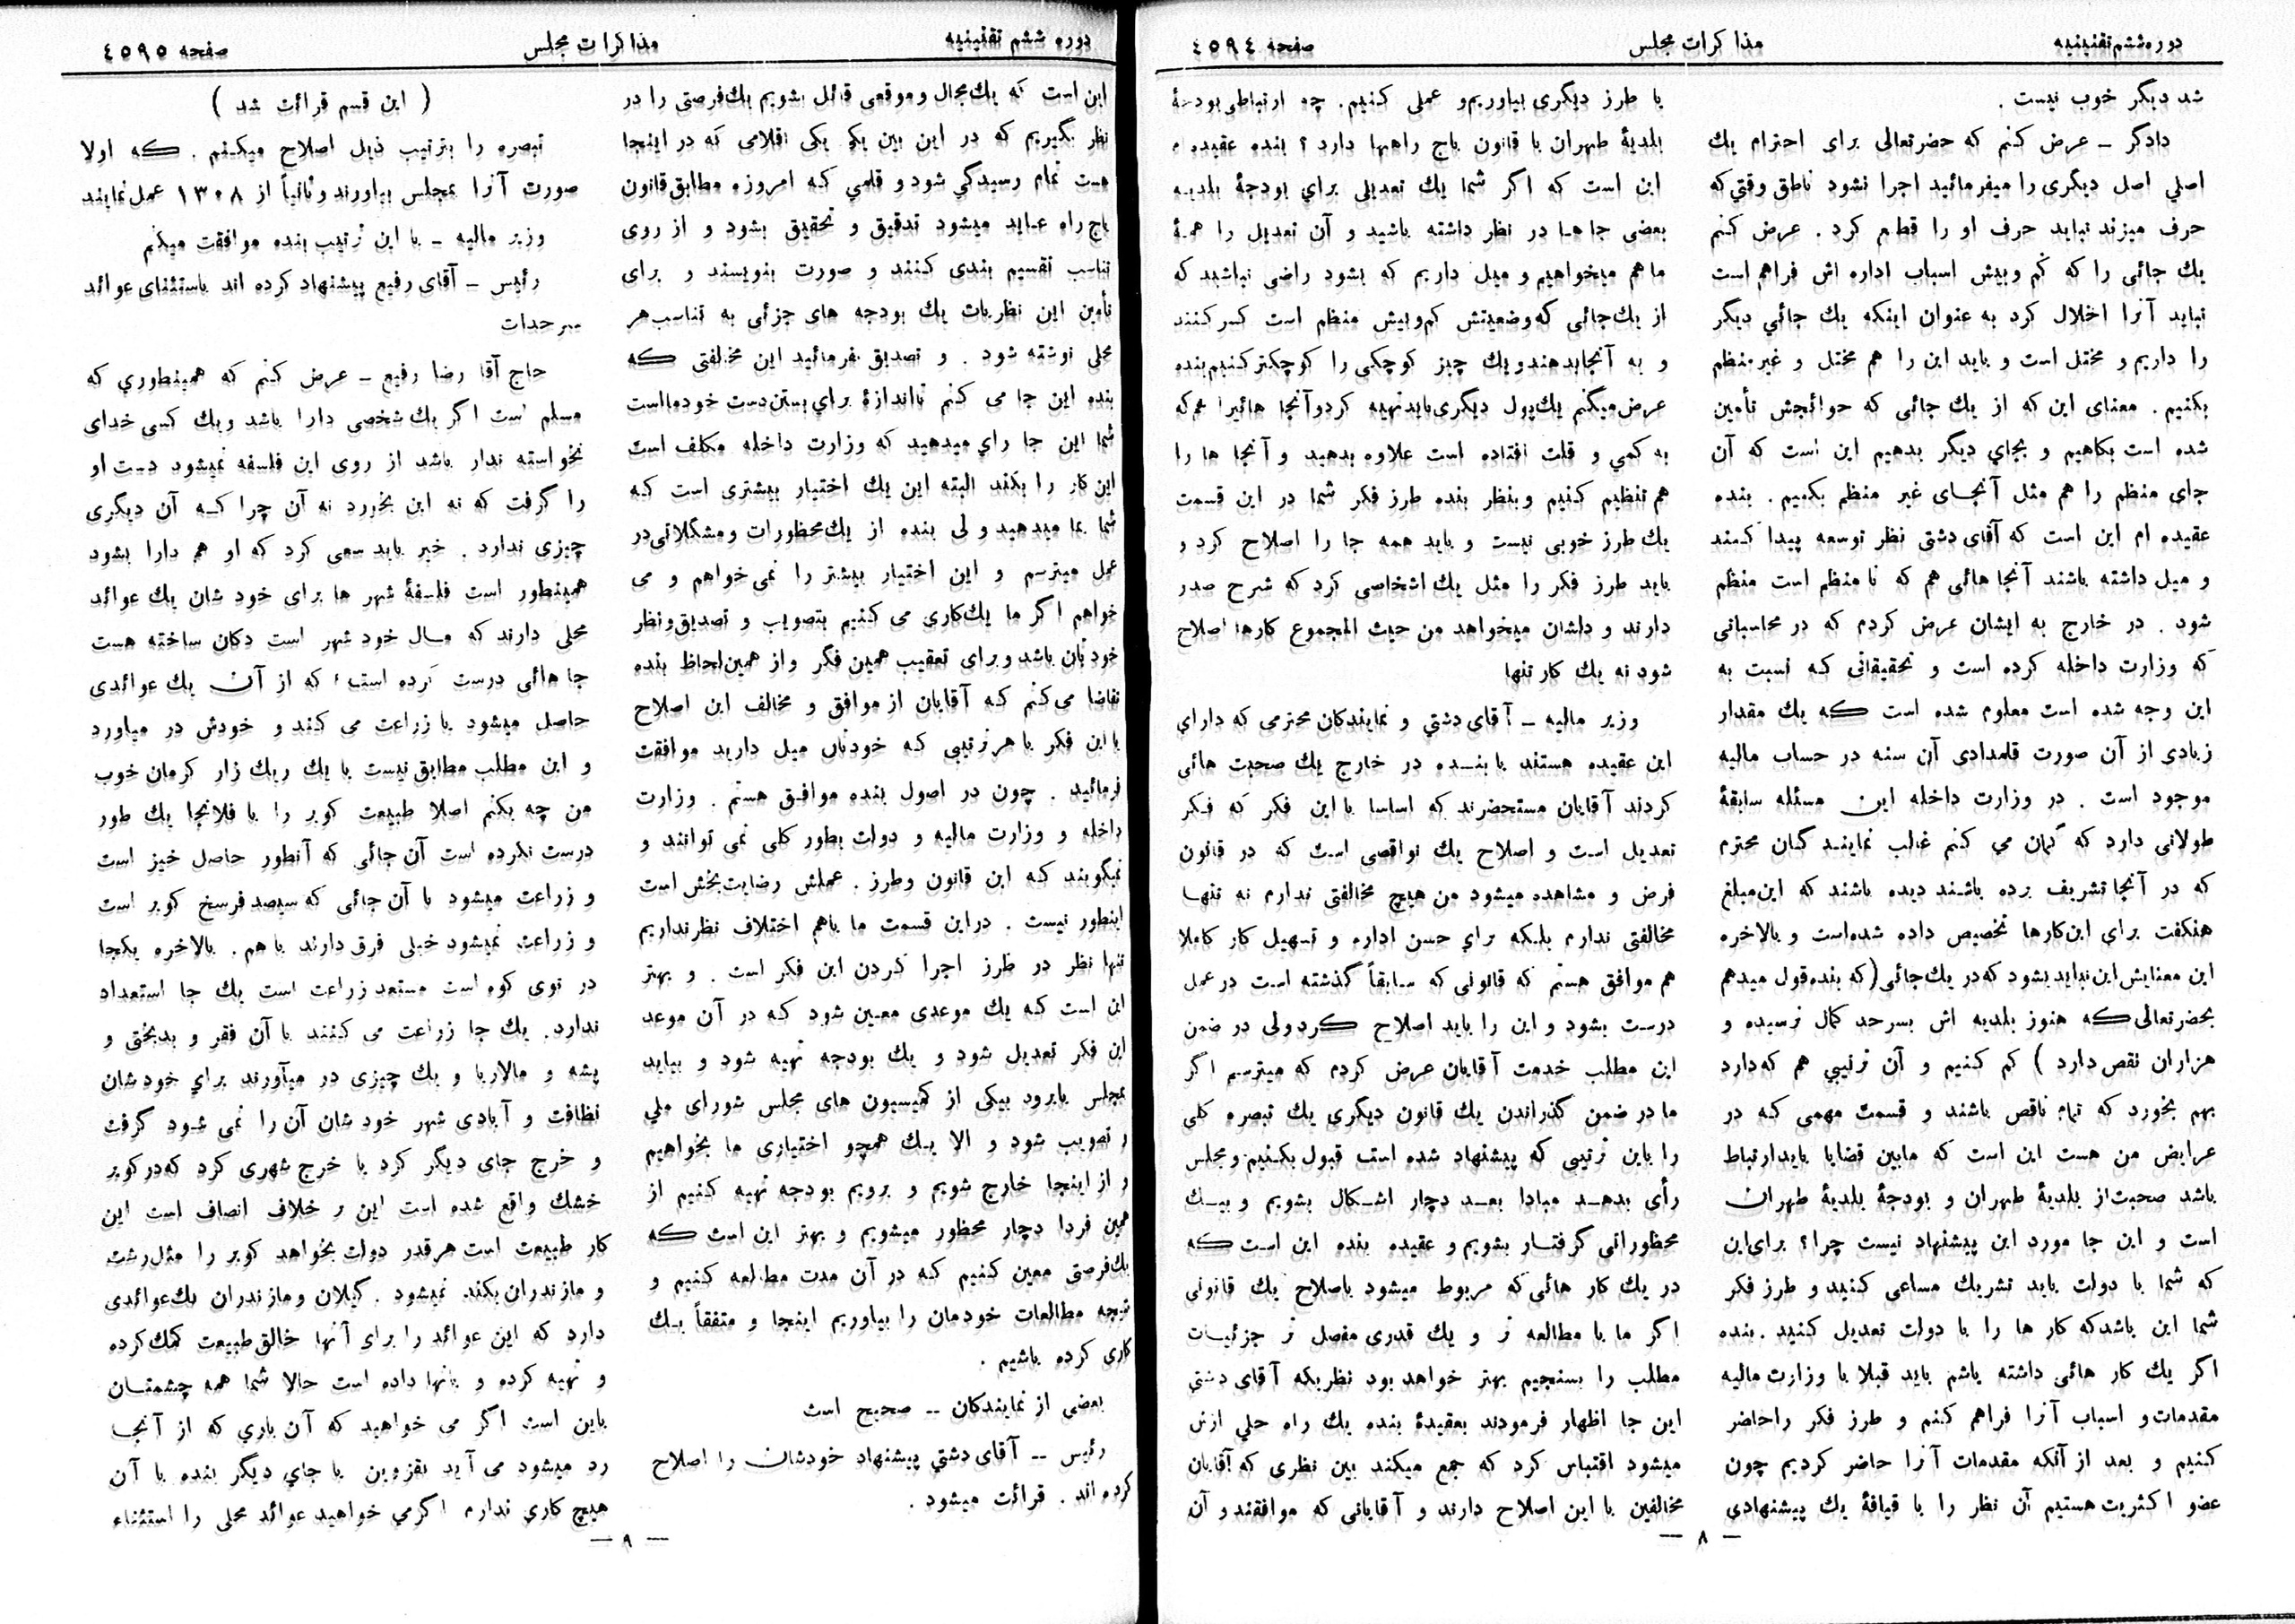 دوره ششم تقنینیه
مذاکرات مجلس
صفحه ٤٥٩٤
شد دیگر خوب نیست .
دادگر ـ عرض کنم که حضرتعالی برای احترام یك
اصلی اصل دیگری را میفرمائید اجرا نشود ناطق وقتي که
حرف میزند نباید حرف او را قطع کرد . عرض کنم
یك جائی را که کم وبیش اسباب اداره اش فراهم است
نباید آنرا اخلال کرد به عنوان اینکه یك جائي دیگر
را داریم و مختل است و باید این را هم مختل و غیر منظم
بکنیم . معنای این که از یك جائی که حوائجش تأمین
شده است بکاهیم و بجای دیگر بدهیم این است که آن
جای منظم را هم مثل آنجـای غیر منظم بکنیم . بنده
عقیده ام این است که آقای دشتی نظر توسعه پیدا کنند
و میل داشته باشند آنجا هائی هم که نا منظم است منظم
شود . در خارج به ایشان عرض کردم که در محاسباتی
که وزارت داخله کرده است و تحقیقاتی که نسبت به
این وجه شده است معلوم شده است که یك مقدار
زیادی از آن صورت قلمدادی آن سنه در حساب مالیه
موجود است . در وزارت داخله این مسئله سابقهٔ
طولانی دارد که گمان می کنم غالب نماینـد گان محترم
که در آنجا تشریف برده باشند دیده باشند که این مبلغ
هنگفت برای این کارها تخصیص داده شده است و بالاخره
این معنایش این نباید بشود که در یك جائی (که بنده قول میدهم
بحضرتعالی که هنوز بلدیه اش بسرحد کمال نرسیده و
هزاران نقص دارد ) کم کنیم و آن ترتیبي هم که دارد
بهم بخورد که تمام ناقص باشند و قسمت مهمی که در
عرایض من هست این است که مابین قضایا باید ارتباط
باشد صحبت از بلدیهٔ طهران و بودجهٔ بلدیهٔ طهران
است و این جا مورد این پیشنهاد نیست چرا؟ برای این
که شما با دولت باید تشریك مساعی کنید و طرز فکر
شما این باشد که کار ها را با دولت تعدیل کنید . بنده
اگر یك کار هائی داشته باشم باید قبلا با وزارت مالیه
مقدمات و اسباب آنرا فراهم کنم و طرز فکر را حاضر
کنیم و بعد از آنکه مقدمات آنرا حاضر کردیم چون
عضو اکثریت هستیم آن نظر را با قیافهٔ یك پیشنهادی
یا طرز دیگری بیاوریم و عملی کنیم. چه ارتباطی بودجهٔ
بلدیهٔ طهران با قانون باج راهها دارد ؟ بنده عقیده ام
این است که اگر شما یك تعدیلی برای بودجهٔ بلدیه
بعضی جا هـا در نظر داشته باشید و آن تعدیل را همهٔ
ما هم میخواهیم و میل داریم که بشود راضی نباشید که
از یك جائی که وضعیتش کم و بیش منظم است کسر کنند
و به آنجا بدهند و یك چیز کوچکی را کوچکتر کنیم بنده
عرض میکنم یك پول دیگری باید تهیه کرد و آنجا هائیرا هم که
به کمي و قلت افتاده است علاوه بدهید و آنجا ها را
هم تنظیم کنیم و بنظر بنده طرز فکر شما در این قسمت
یك طرز خوبی نیست و باید همه جا را اصلاح کرد و
باید طرز فکر را مثل یك اشخاصی کرد که شرح صدر
دارند و دلشان میخواهد من حیث المجموع کارها اصلاح
شود نه یك کار تنها
وزیر مالیه ـ آقای دشتي و نمایندکان محترمی که دارای
این عقیده هستند با بنـده در خارج یك صحبت هائی
کردند آقایان مستحضرند که اساسا با این فکر که فکر
تعدیل است و اصلاح یك نواقصی است که در قانون
فرض و مشاهده میشود من هیچ مخالفتی ندارم نه تنها
مخالفتی ندارم بلکه برای حسن اداره و تسهیل کار کاملا
هم موافق هستم که قانونی که سابقاً گذشته است در عمل
درست بشود و این را باید اصلاح کرد ولی در ضمن
این مطلب خدمت آقایان عرض کردم که میترسم اگر
ما در ضمن گذراندن یك قانون دیگری یك تبصره کلی
را باین ترتیبی که پیشنهاد شده است قبول بکنیم و مجلس
رأی بدهـد مبادا بعـد دچار اشـکال بشویم و بیـك
محظوراتی گرفتـار بشویم و عقیده بنده این است که
در یك کار هائی که مربوط میشود باصلاح یك قانونی
اگر ما با مطالعه تر و یك قدری مفصل تر جزئیـات
مطلب را بسنجیم بهتر خواهد بود نظریکه آقای دشتي
این جا اظهار فرمودند بعقیدهٔ بنده یك راه حلی ازش
میشود اقتباس کرد که جمع میکند بین نظری که آقایان
مخالفین با این اصلاح دارند و آقایانی که موافقند و آن
ـ ۸ ـ
دوره ششم تقنینیه
مذاکرات مجلس
صفحه ٤٥٩٥
این است که یك مجال و موقعی قائل بشویم یك فرصتی را در
نظر بگیریم که در این بین یکی یکی اقلامی که در اینجا
هست تمام رسیدگي شود و قلمي که امروزه مطابق قانون
باج راه عـاید میشود تدقیق و تحقیق بشود و از روی
تناسب تقسیم بندی کنند و صورت بنویسند و برای
تأمین این نظریات یك بودجه های جزئی به تناسب هر
محلی نوشته شود . و تصدیق بفرمائید این مخالفتی که
بنده این جا می کنم تااندازهٔ برای بستن دست خودمااست
شما این جا رای میدهید که وزارت داخله مکلف است
این کار را بکند البته این یك اختیار بیشتری است که
شما بما میدهید ولی بنده از یك محظورات و مشکلاتی در
عمل میترسم و این اختیار بیشتر را نمی خواهم و می
خواهم اگر ما یك کاری می کنیم بتصویب و تصدیق و نظر
خودتان باشد و برای تعقیب همین فکر و از همین لحاظ بنده
تقاضا می کنم که آقایان از موافق و مخالف این اصلاح
با این فکر با هر ترتیبی که خودتان میل دارید موافقت
فرمائید . چون در اصول بنده موافق هستم . وزارت
داخله و وزارت مالیه و دولت بطور کلی نمی توانند و
نمیگویند که این قانون وطرز . عملش رضایت بخش است
اینطور نیست . دراین قسمت ما باهم اختلاف نظر نداریم
تنها نظر در طرز اجرا کردن این فکر است . و بهتر
این است که یك موعدی معین شود که در آن موعد
این فکر تعدیل شود و یك بودجه تهیه شود و بیاید
بمجلس یا برود بیکی از کمیسیون های مجلس شورای ملي
و تصویب شود و الا یك همچو اختیاری ما بخواهیم
و از اینجا خارج شویم و برویم بودجه تهیه کنیم از
همین فردا دچار محظور میشویم و بهتر این است که
یك فرصتی معین کنیم که در آن مدت مطالعه کنیم و
نتیجه مطالعات خودمان را بیاوریم اینجا و متفقاً یك
کاری کرده باشیم .
بعضی از نمایندکان ــ صحیح است
رئیس ــ آقای دشتي پیشنهاد خودشان را اصلاح
کرده اند . قرائت میشود .
( این قسم قرائت شد )
تبصره را بترتیب ذیل اصلاح میکنم . که اولا
صورت آنرا بمجلس بیاورند و ثانیاً از ۱۳۰۸ عمل نمایند
وزیر مالیه ـ با این ترتیب بنده موافقت میکنم
رئیس ـ آقای رفیع پیشنهاد کرده اند باستثنای عوائد
سرحدات
حاج آقا رضا رفیع ـ عرض کنم که همینطوري که
مسلم است اگر یك شخصی دارا باشد ویك کسی خدای
نخواسته ندار باشد از روی این فلسفه نمیشود دست او
را گرفت که نه این بخورد نه آن چرا که آن دیگری
چیزی ندارد . خیر باید سعی کرد که او هم دارا بشود
همینطور است فلسفهٔ شهر ها برای خود شان یك عوائد
محلی دارند که مـال خود شهر است دکان ساخته هست
جا هائی درست کرده است که از آن یك عوائدی
حاصل میشود یا زراعت می کند و خودش در میاورد
و این مطلب مطابق نیست با یك ریك زار کرمان خوب
من چه بکنم اصلا طبیعت کویر را یا فلانجا یك طور
درست نکرده است آن جائی که آنطور حاصل خیز است
و زراعت میشود با آن جائی که سیصد فرسخ کویر است
و زراعت نمیشود خیلی فرق دارند باهم . بالاخره یکجا
در توی کوه است مستعد زراعت است یك جا استعداد
ندارد. یك جا زراعت می کنند با آن فقر و بدبختی و
پشه و مالاریا و یك چیزی در میآورند برای خودشان
نظافت و آبادی شهر خود شان آن را نمی شود گرفت
و خرج جای دیگر کرد یا خرج شهری کرد که در کویر
خشك واقع شده است این بر خلاف انصاف است این
کار طبیعت است هرقدر دولت بخواهد کویر را مثل رشت
و مازندران بکند نمیشود . گیلان و مازندران یك عوائدی
دارد که این عوائد را برای آنها خالق طبیعت کمك کرده
و تهیه کرده و بانها داده است حالا شما همه چشمتـان
باین است اگر می خواهید که آن باري که از آنجـا
رد میشود می آید بقزوین یا جاي دیگر بنده با آن
هیچ کاري ندارم اگرمي خواهید عوائد محلی را استثناء
ـ ۹ ـ